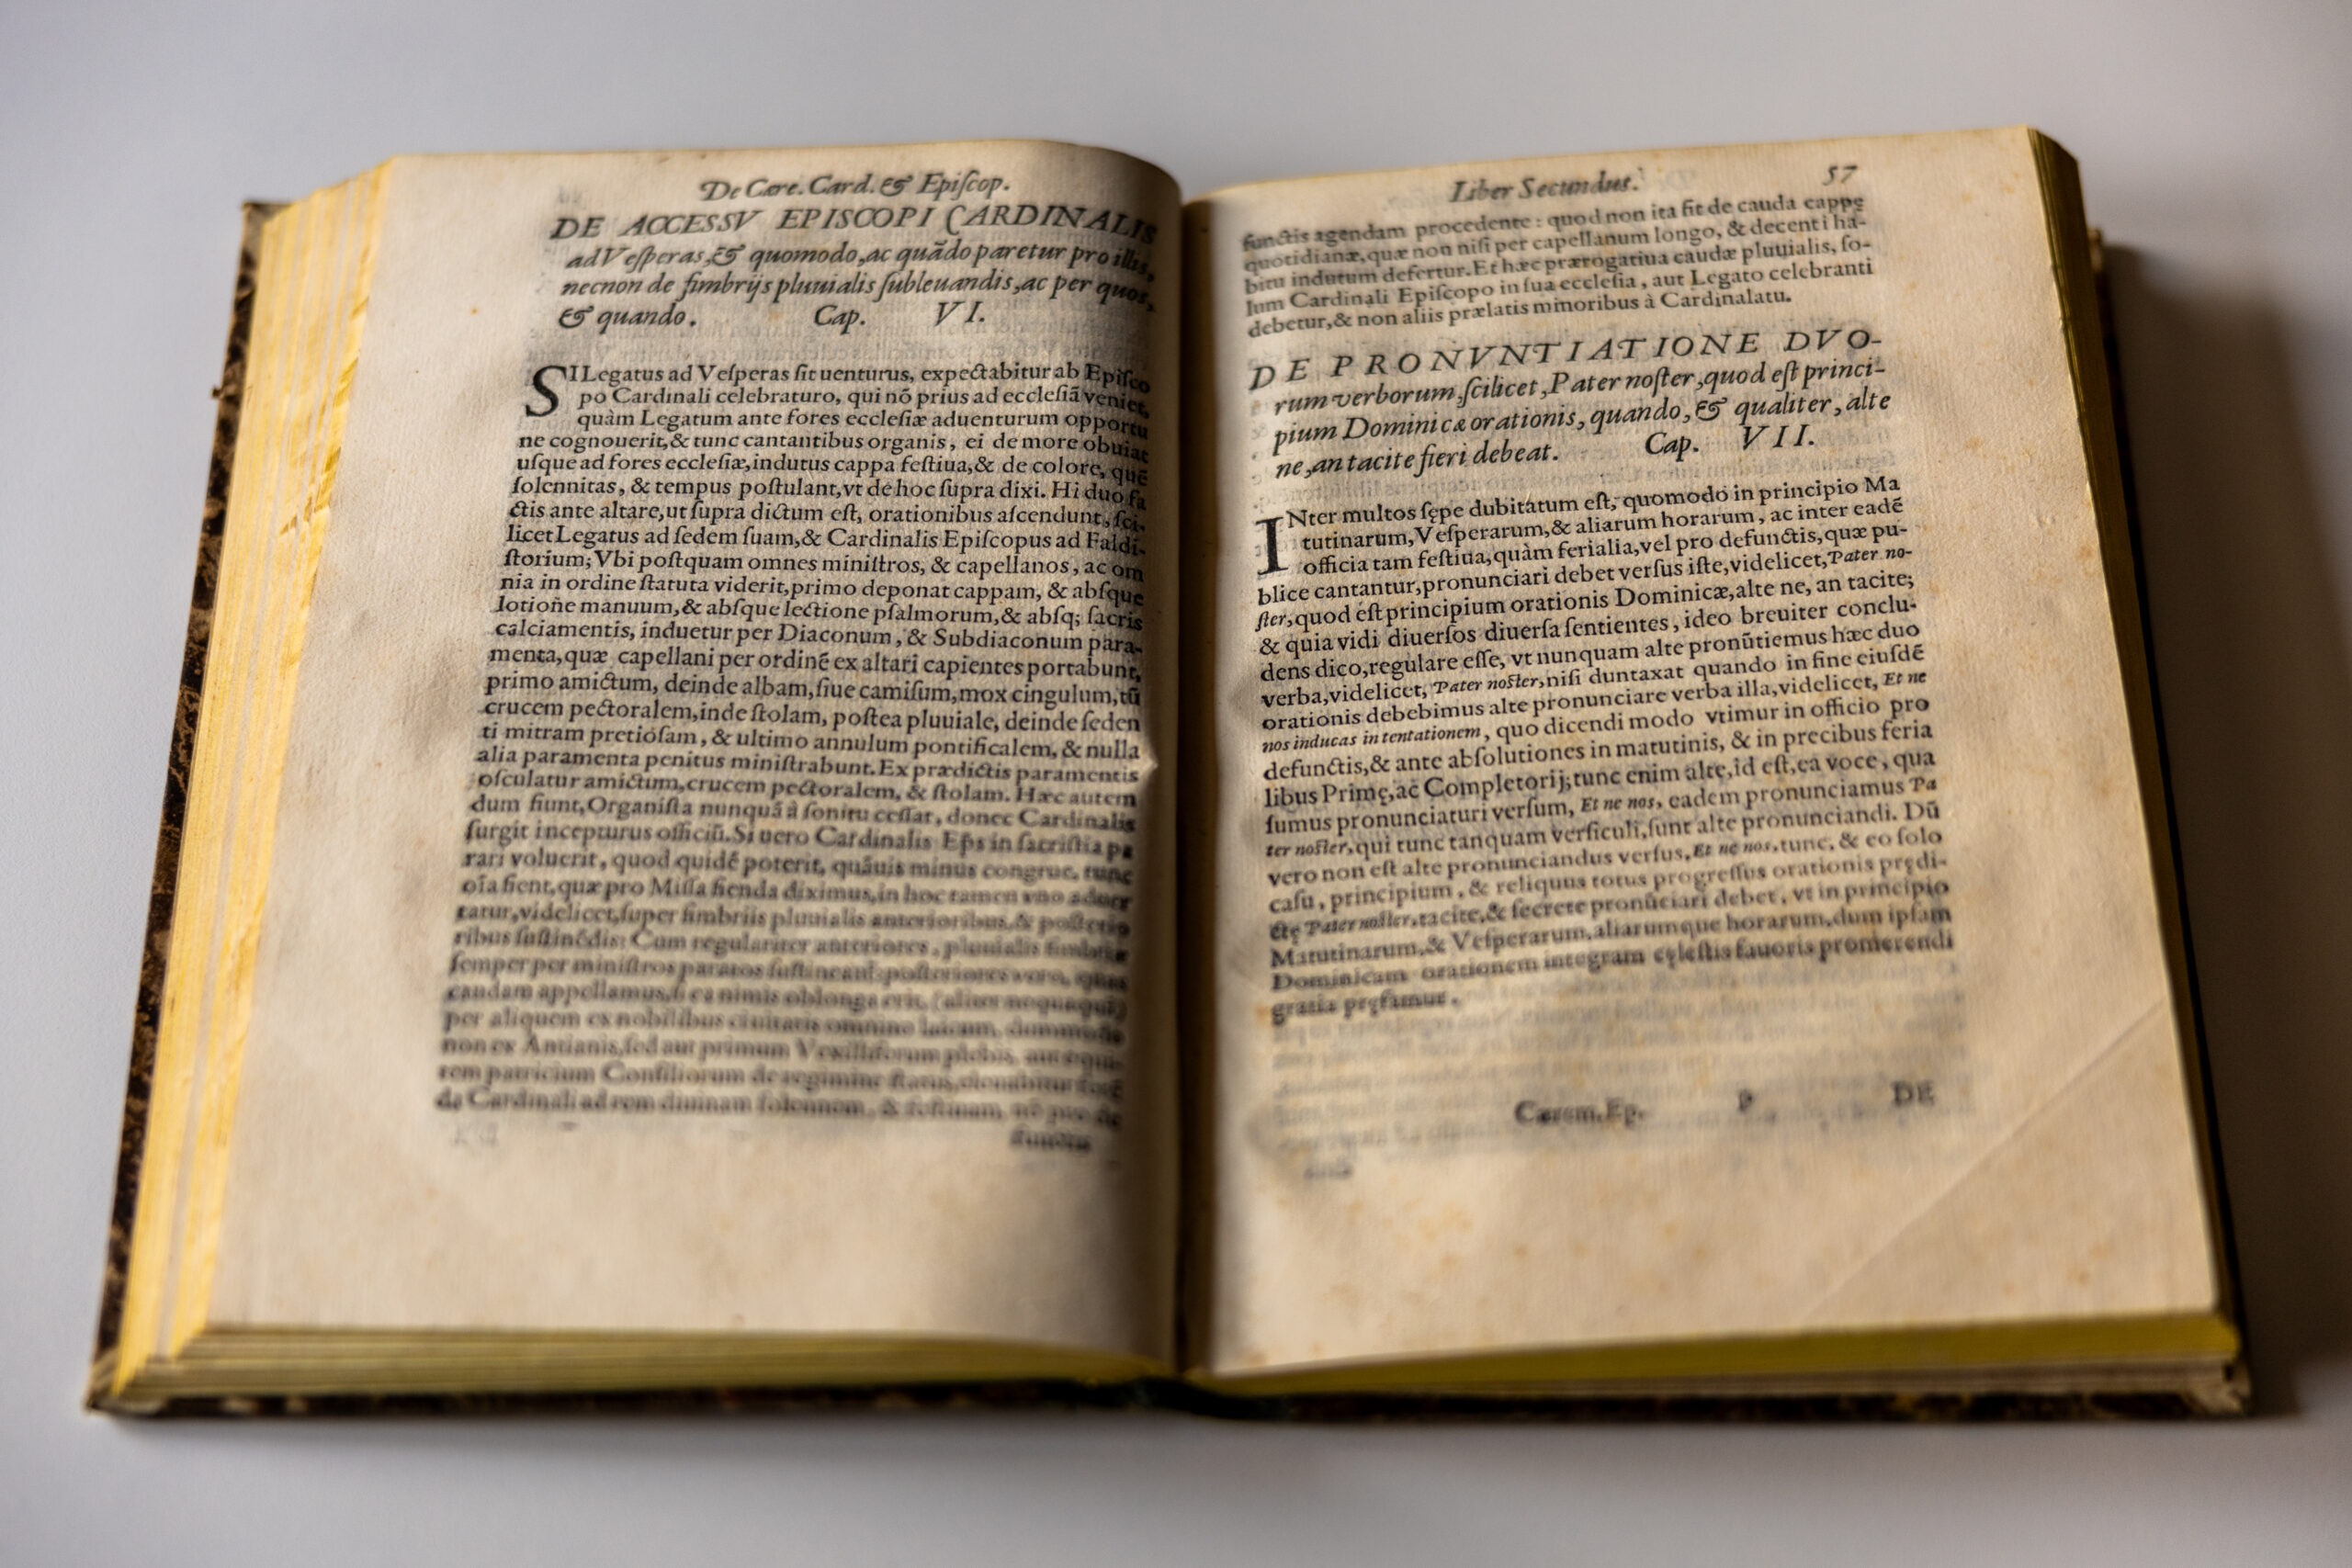 De Cære. Card. & Episcop.
DE ACCESSV EPISCOPI CARDINALIS
ad Vesperas, & quomodo, ac quãdo paretur pro illis,
necnon de fimbrijs pluuialis subleuandis, ac per quos,
& quando. Cap. VI.
SI Legatus ad Vesperas sit uenturus, expectabitur ab Episco
po Cardinali celebraturo, qui nõ prius ad ecclesiã veniet,
quàm Legatum ante fores ecclesiæ aduenturum opportu
ne cognouerit, & tunc cantantibus organis, ei de more obuiat
usque ad fores ecclesiæ, indutus cappa festiua, & de colore, quẽ
solennitas, & tempus postulant, vt de hoc supra dixi. Hi duo fa
ctis ante altare, ut supra dictum est, orationibus ascendunt, sci-
licet Legatus ad sedem suam, & Cardinalis Episcopus ad Faldi-
storium; Vbi postquam omnes ministros, & capellanos, ac om
nia in ordine statuta viderit, primo deponat cappam, & absque
lotione manuum, & absque lectione psalmorum, & absq; sacris
calciamentis, induetur per Diaconum, & Subdiaconum para-
menta, quæ capellani per ordinẽ ex altari capientes portabunt,
primo amictum, deinde albam, siue camisum, mox cingulum, tũ
crucem pectoralem, inde stolam, postea pluuiale, deinde seden
ti mitram pretiosam, & ultimo annulum pontificalem, & nulla
alia paramenta penitus ministrabunt. Ex prædictis paramentis
osculatur amictum, crucem pectoralem, & stolam. Hæc autem
dum fiunt, Organista nunquã à sonitu cessat, donec Cardinalis
surgit incepturus officiũ. Si uero Cardinalis Eps in sacristia pa
rari voluerit, quod quidẽ poterit, quãuis minus congrue, tunc
oĩa fient, quæ pro Missa fienda diximus, in hoc tamen vno aduer
tatur, videlicet, super fimbriis pluuialis anterioribus, & posterio
ribus sustinẽdis: Cum regulariter anteriores, pluuialis fimbriæ
semper per ministros paratos sustineant: posteriores vero, quas
caudam appellamus, si ea nimis oblonga erit, (aliter nequaquã)
per aliquem ex nobilibus ciuitatis omnino laicum, dummodo
non ex Antianis, sed aut primum Vexilliferum plebis, aut equi-
tem patricium Consiliorum de regimine status,
de Cardinali ad rem diuinam solennem, & festiuam, nõ pro de
functis
Liber Secundus. 57
functis agendam procedente: quod non ita fit de cauda cappę
quotidianæ, quæ non nisi per capellanum longo, & decenti ha-
bitu indutum defertur. Et hæc prærogatiua caudæ pluuialis, so-
lum Cardinali Episcopo in sua ecclesia, aut Legato celebranti
debetur, & non aliis prælatis minoribus à Cardinalatu.
DE PRONVNTIATIONE DVO-
rum verborum, scilicet, Pater noster, quod est princi-
pium Dominicæ orationis, quando, & qualiter, alte
ne, an tacite fieri debeat. Cap. VII.
INter multos sępe dubitatum est, quomodo in principio Ma
tutinarum, Vesperarum, & aliarum horarum, ac inter eadẽ
officia tam festiua, quàm ferialia, vel pro defunctis, quæ pu-
blice cantantur, pronunciari debet versus iste, videlicet, Pater no-
ster, quod est principium orationis Dominicæ, alte ne, an tacite;
& quia vidi diuersos diuersa sentientes, ideo breuiter conclu-
dens dico, regulare esse, vt nunquam alte pronũtiemus hæc duo
verba, videlicet, Pater noster, nisi duntaxat quando in fine eiusdẽ
orationis debebimus alte pronunciare verba illa, videlicet, Et ne
nos inducas in tentationem, quo dicendi modo vtimur in officio pro
defunctis, & ante absolutiones in matutinis, & in precibus feria
libus Primę, ac Completorij; tunc enim alte, id est, ea voce, qua
sumus pronunciaturi versum, Et ne nos, eadem pronunciamus Pa
ter noster, qui tunc tanquam versiculi, sunt alte pronunciandi. Dũ
vero non est alte pronunciandus versus, Et ne nos, tunc, & eo solo
casu, principium, & reliquus totus progressus orationis prędi-
ctę Pater noster, tacite, & secrete pronũciari debet, vt in principio
Matutinarum, & Vesperarum, aliarumque horarum, dum ipsam
Dominicam orationem integram cęlestis fauoris promerendi
gratia pręfamur.
Cærem. Ep. P DE